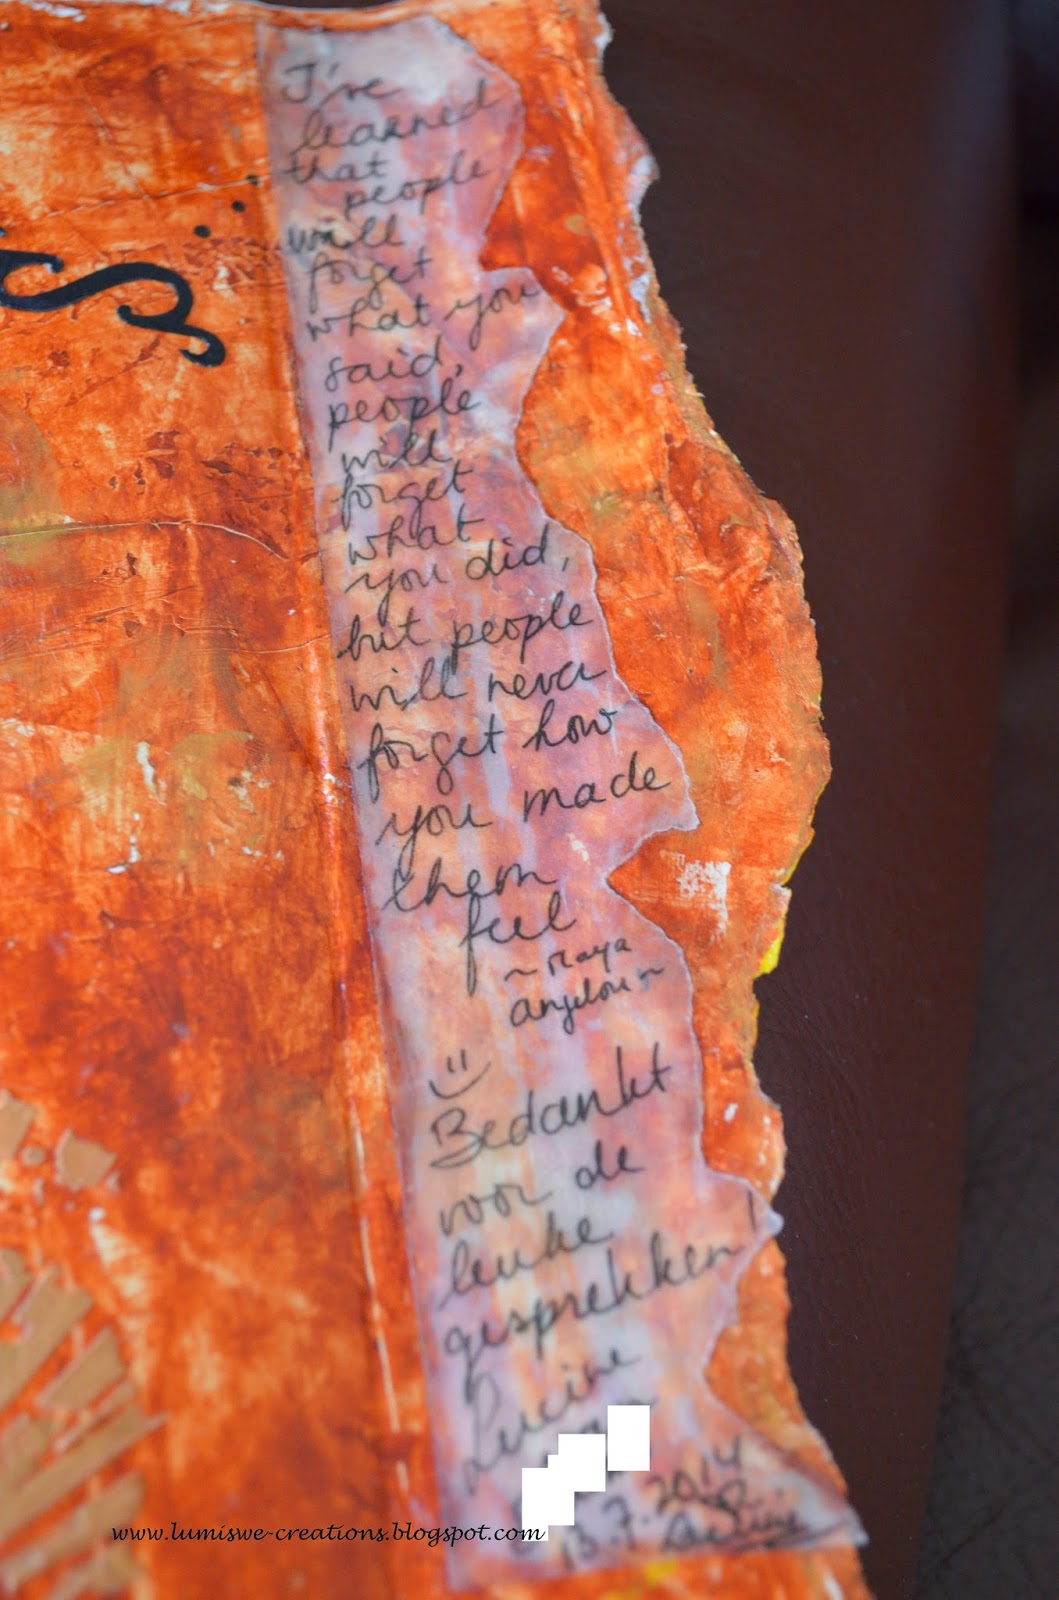 I've
learned
that
people
will
forget
what you
said,
people
will
forget
what
you did,
but people
will never
forget how
you made
them
feel
~ Maya
Angelou ~
Bedankt
voor de
leuke
gesprekken!
Lucine
13.7.2014
www.lumiswe-creations.blogspot.com